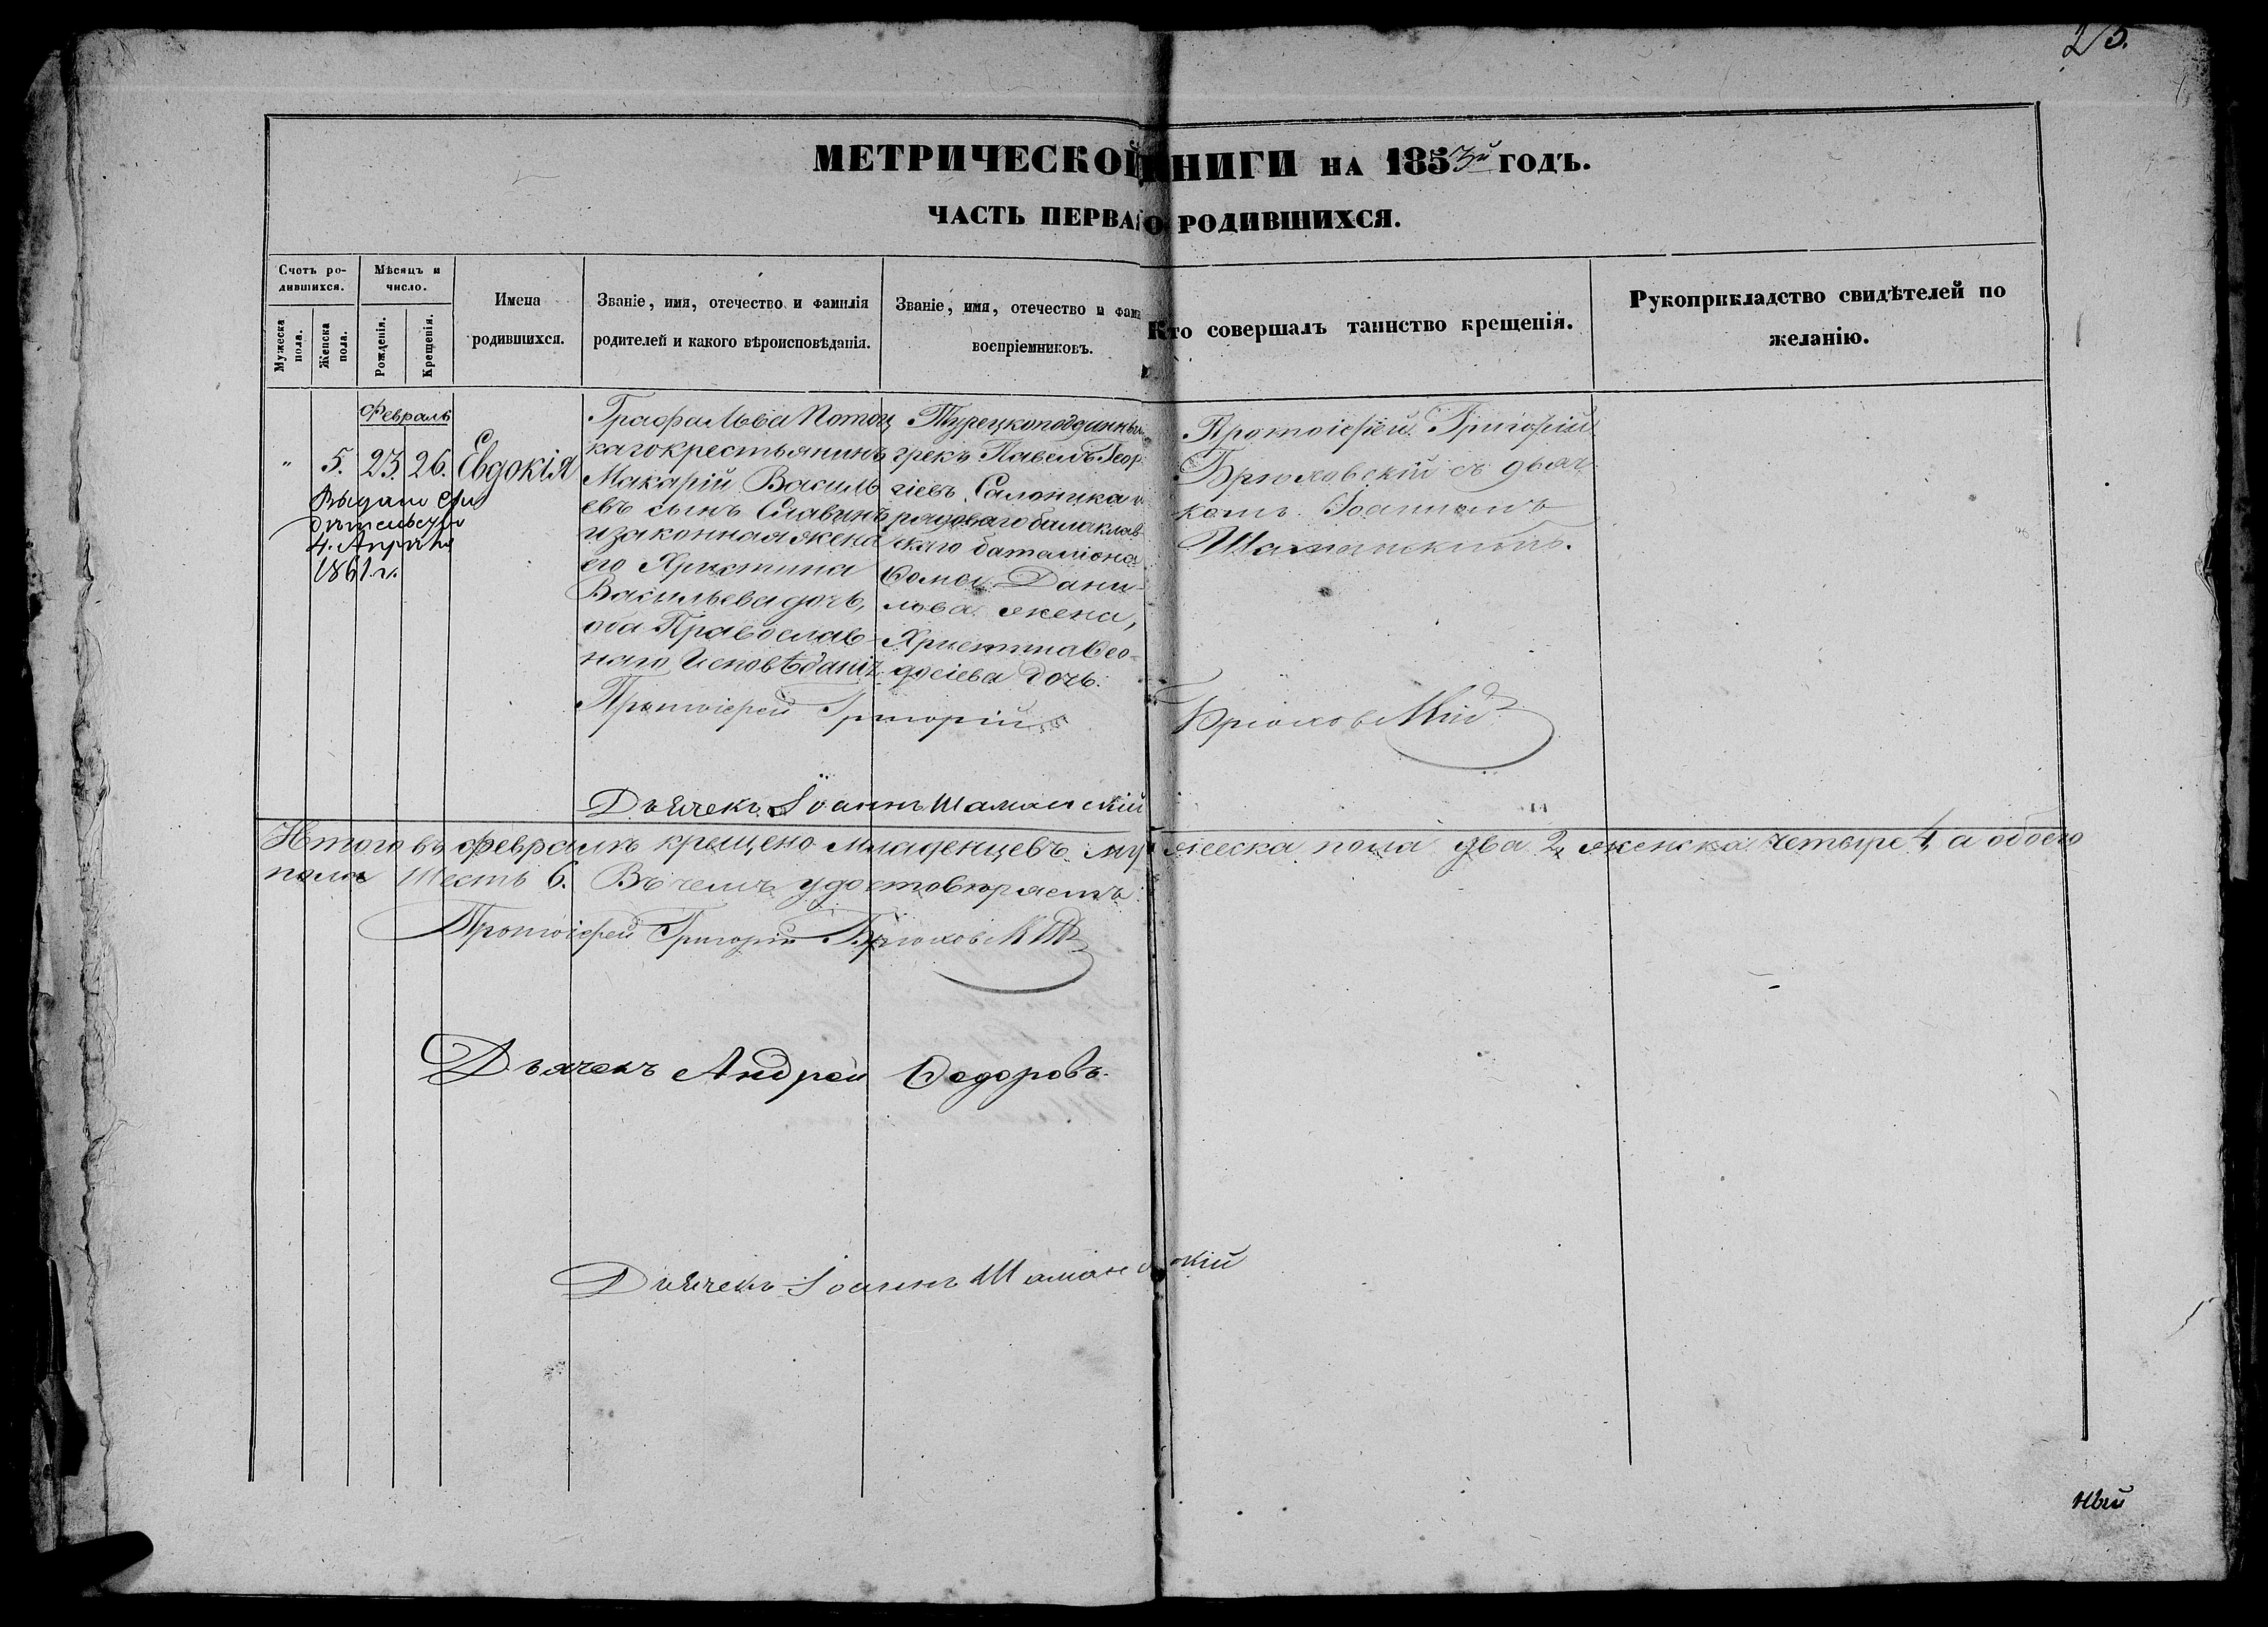 25.
МЕТРИЧЕСКОЙ КНИГИ НА 1853й ГОДЪ.
ЧАСТЬ ПЕРВАЯ О РОДИВШИХСЯ.
Счетъ ро-
дившихся.
Мужеска пола.
Женска пола.
Мѣсяцъ и
число.
Рожденія.
Крещенія.
Имена
родившихся.
Званіе, имя, отечество и фамилія
родителей и какого вѣроисповѣданія.
Званіе, имя, отечество и фами
воспріемниковъ.
Кто совершалъ таинство крещенія.
Рукоприкладство свидѣтелей по
желанію.
Февраль
" 5. 23. 26. Евдокія
Выдано сви
дѣтельство
4. Апрѣля
1861 г.
Графа Льва Потоц
каго крестьянинъ
Макарій Василь
евъ сынъ Славинъ
и законная жена
его Христина
Васильева дочь,
оба Православ-
наго Исповѣданія
Турецкоподданный
грекъ Павелъ Геор
гіевъ Салоника и
рядоваго балаклав
скаго баталіона
Ѳомы Дани-
лова жена,
Христина Ѳео-
досіева дочь.
Протоіерей Григорій
Брюховскій съ дьяч
комъ Іоанномъ
Шаманскимъ.
Протоіерей Григорій Брюховскій
Дьячекъ Іоаннъ Шаманскій
Итого въ февралѣ крещено младенцевъ мужеска пола два 2, женска четыре 4, а обоего
пола шесть 6. Въ чемъ удостовѣряемъ:
Протоіерей Григорій Брюховскій
Дьячекъ Андрей Ѳедоровъ.
Дьячекъ Іоаннъ Шаманскій
ный